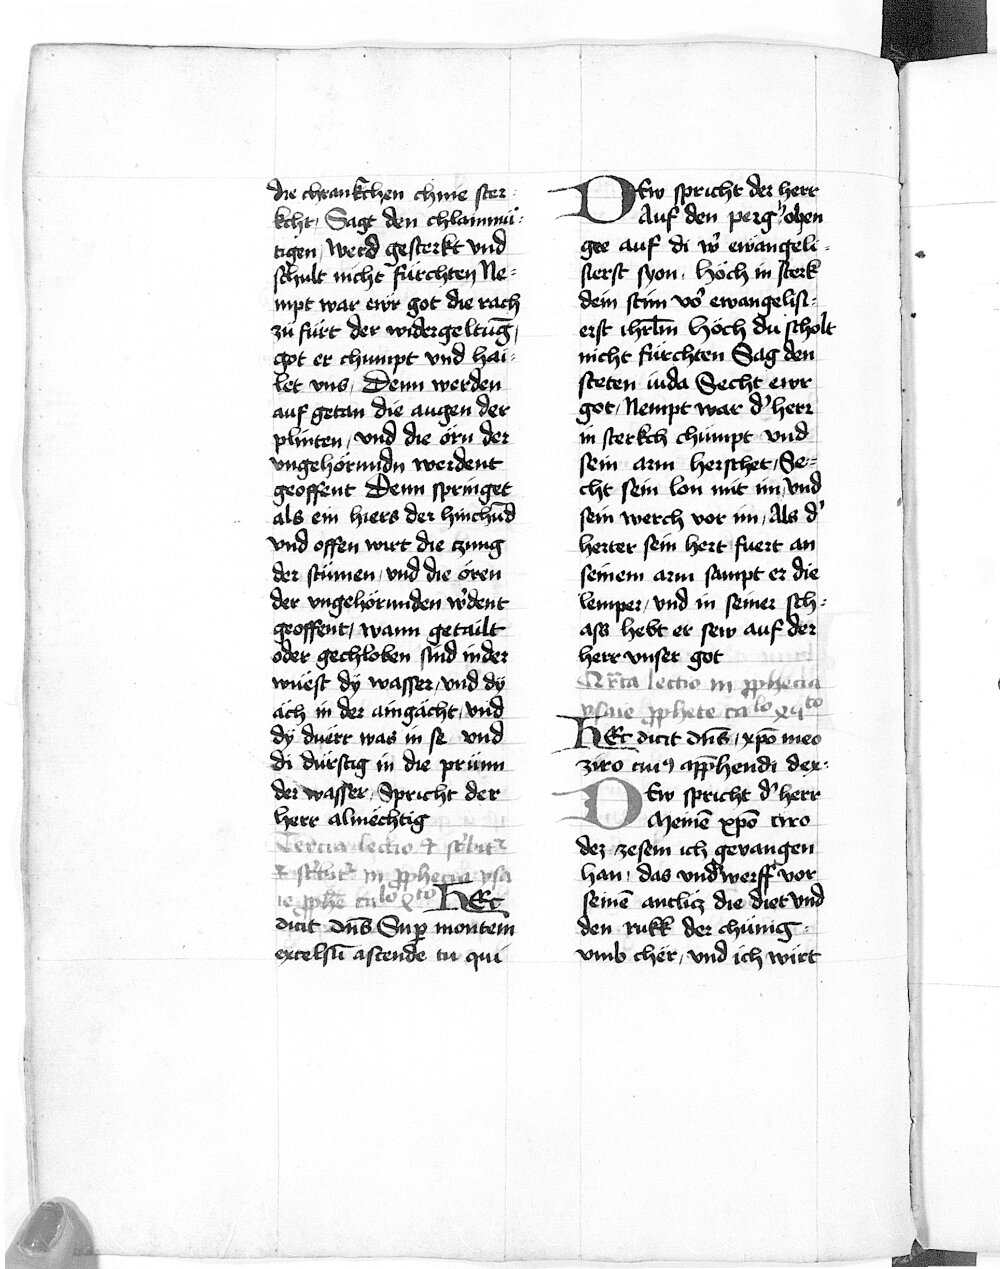 die chrankchen chnie ster-
kcht, Sagt den chlainmü-
tigen, Werd gesterkt vnd
schult nicht fürchten Ne-
mpt war ewr got die rach
zü fürt der widergeltūg,
got er chumpt vnd hai-
let vns, Denn werden
auf getan die augen der
plinten, vnd die örn der
vngehörundn werdent
geoffent Denn springet
als ein hiers der hinchūd
vnd offen wirt die czung
der stümen, vnd die ören
der vngehörunden w'dent
geoffent, wann getailt
oder gechloben sind in der
wüest dÿ wasser, vnd dÿ
äch in der aingächt, vnd
dÿ duerr was in se vnd
di dürstig in die prünn
der wasser, Spricht der
herr almëchtig
Tercia lectio
in pphecia ysa
ie pphē
HEc
dicit dn̄s Sup montem
excelsū ascende tu qui
DEw spricht der herr
Auf den perg oben
gee auf di w' ewangeli-
sierst syon, Höch in sterk
dein stim vo' ewangelisi-
erst ihrlm̄ Höch du scholt
nicht fürchten Sag den
steten iuda Secht ewr
got, Nempt war d' herr
in sterkch chümpt vnd
sein arm herschet, Se-
cht sein lon mit im, vnd
sein werch vor im, Als d'
herter sein hert fuert an
seinem arm sampt er die
lemper, vnd in seiner sch-
ass hebt er sew auf der
herr vnser got
Q'rta lectio in pphecia
ysaie pphete ca^lo xlv^to
HEc dicit dn̄s, xpō meo
ziro cui9 apphendi dex-
DEw spricht d' herr
Meinē xpō ciro
dez zesem ich gevangen
han, das vnd'werff vor
seinē antlicz die diet vnd
den rukk der chünig-
vmb cher, vnd ich wirt